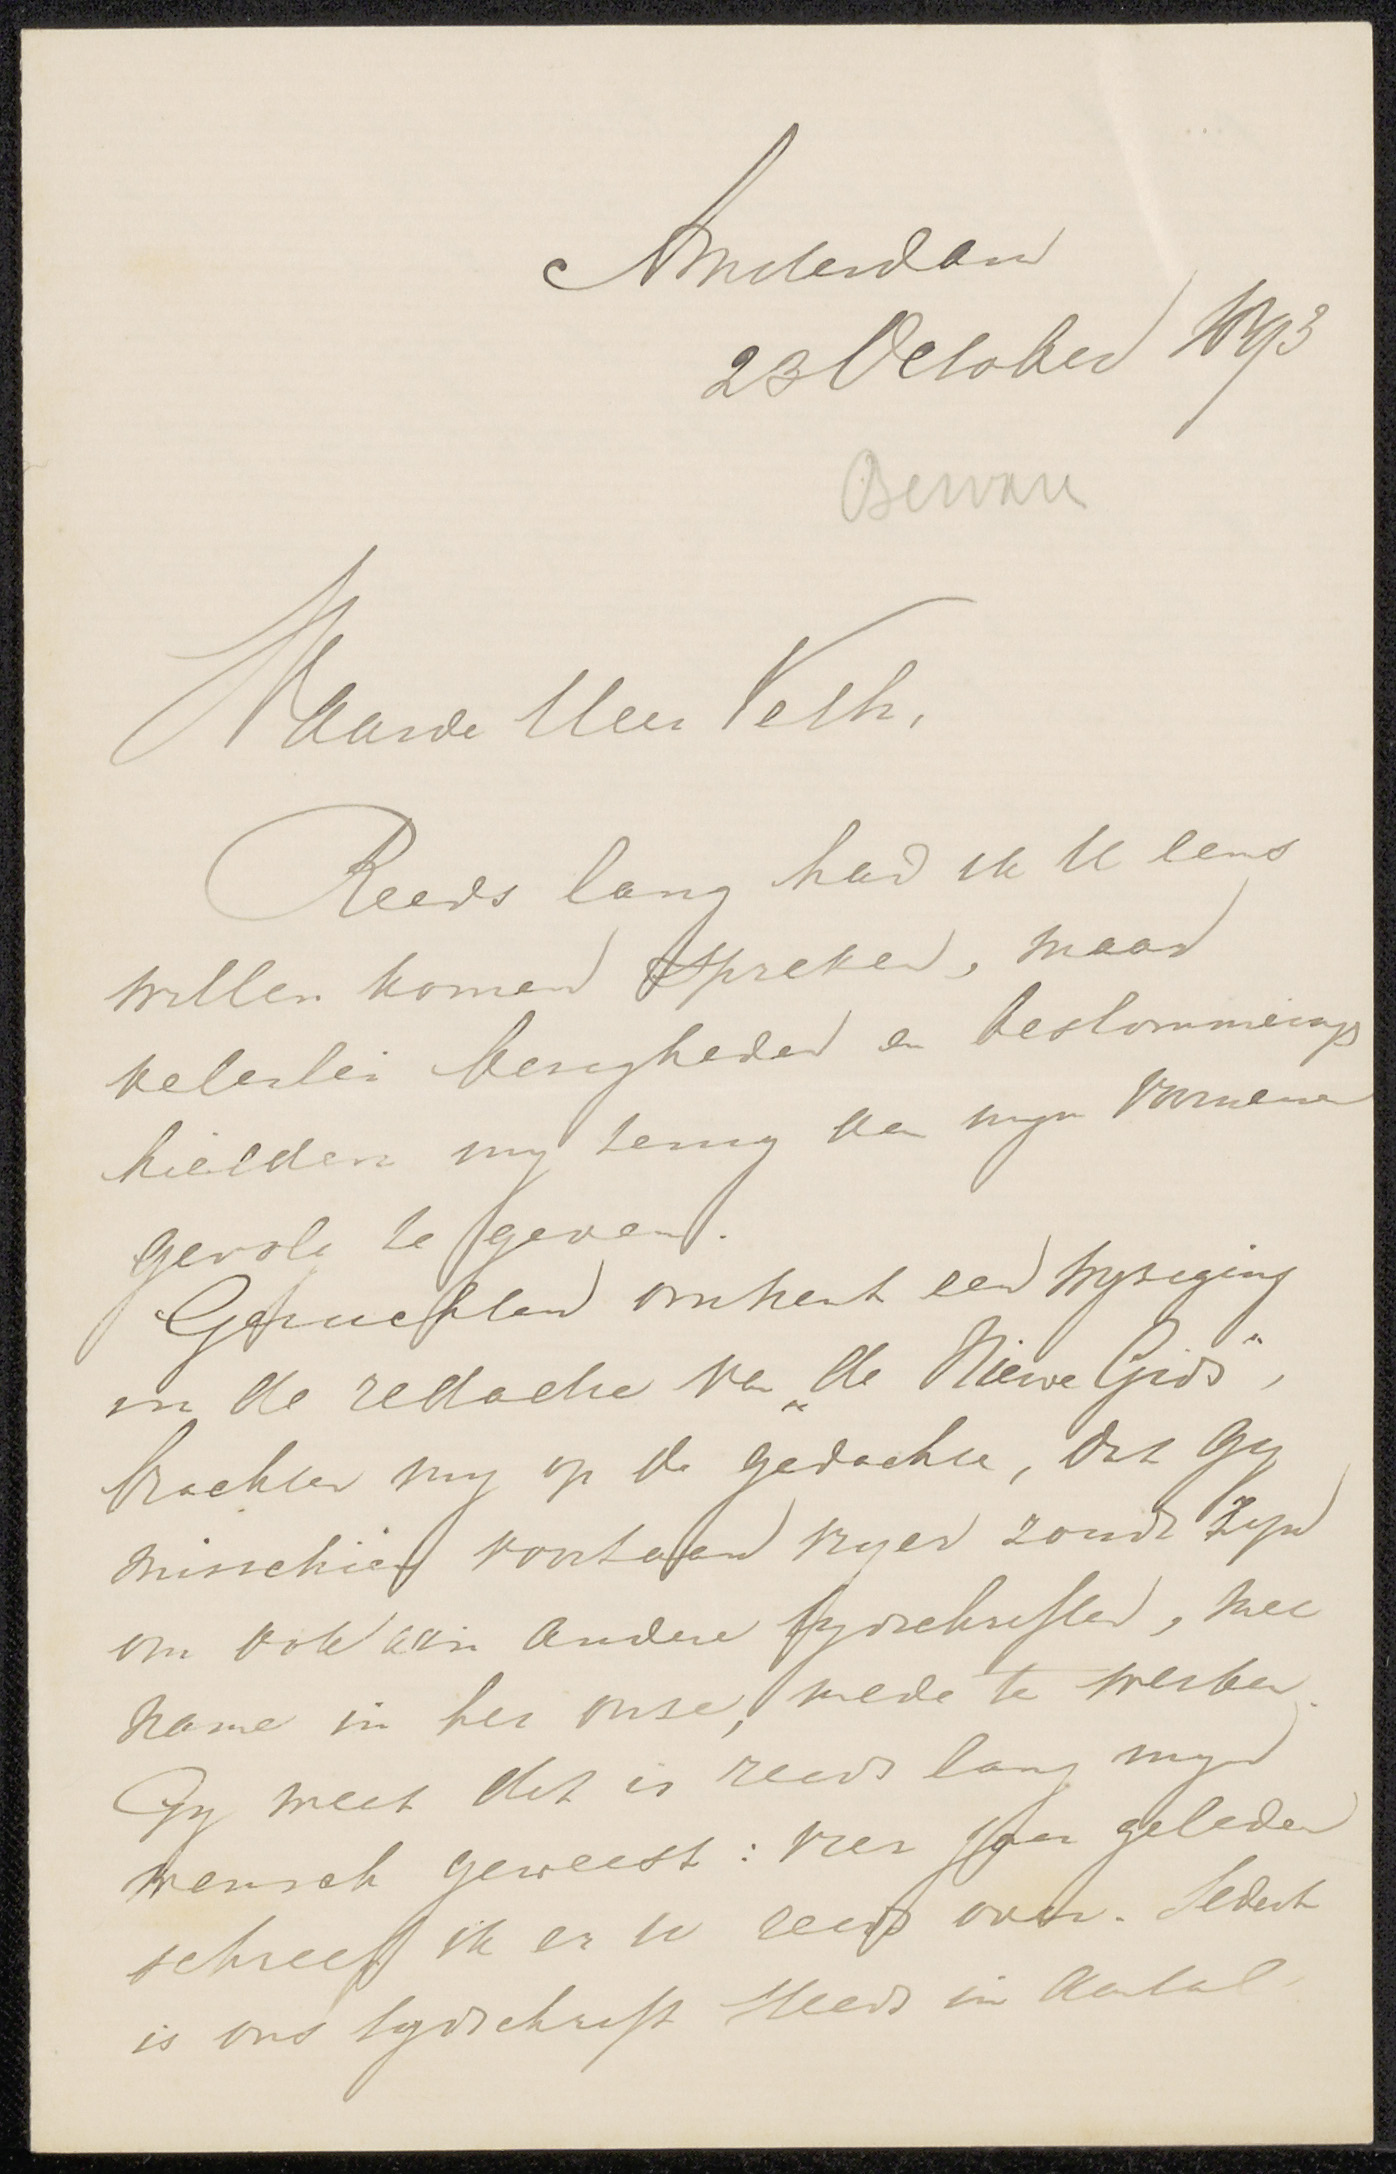 Amsterdam
23 October 1893
Bewaren
Waarde Heer Veth,
Reeds lang had ik U eens
willen komen spreken, maar
velerlei bezigheden en beslommerings
hielden my terug van myn voornemen
gevolg te geven.
Geruchten omtrent een wyziging
in de redactie van „de Nieuwe Gids",
brachten my op de gedachte, dat gy
misschien voortaan vryer zoudt zyn
om ook aan andere tydschriften, met
name in het onze, mede te werken.
Gy weet dit is reeds lang myn
wensch geweest: vier jaar geleden
schreef ik er U reeds over. Sedert
is ons tydschrift steeds in aantal